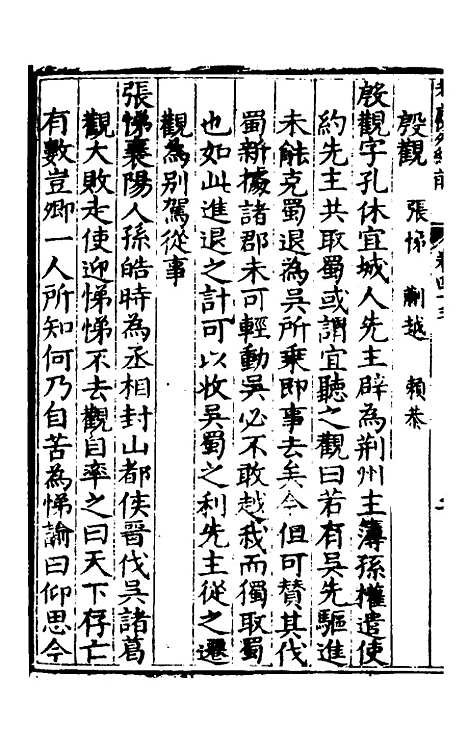 殷觀　張悌　蒯越　賴恭
殷觀字孔休宜城人先主辟為荆州主簿孫權遣使
約先主共取蜀或謂宜聽之觀曰若有吳先驅進
未能克蜀退為吳所乗即事去矣今但可賛其伐
蜀新據諸郡未可輕動吳必不敢越我而獨取蜀
也如此進退之計可以收吳蜀之利先主從之遷
觀為别駕從事
張悌襄陽人孫皓時為丞相封山都侯晉伐吳諸葛
觀大敗走使迎悌悌不去觀自率之曰天下存亡
有數豈卿一人所知何乃自苦為悌諭曰仰思今